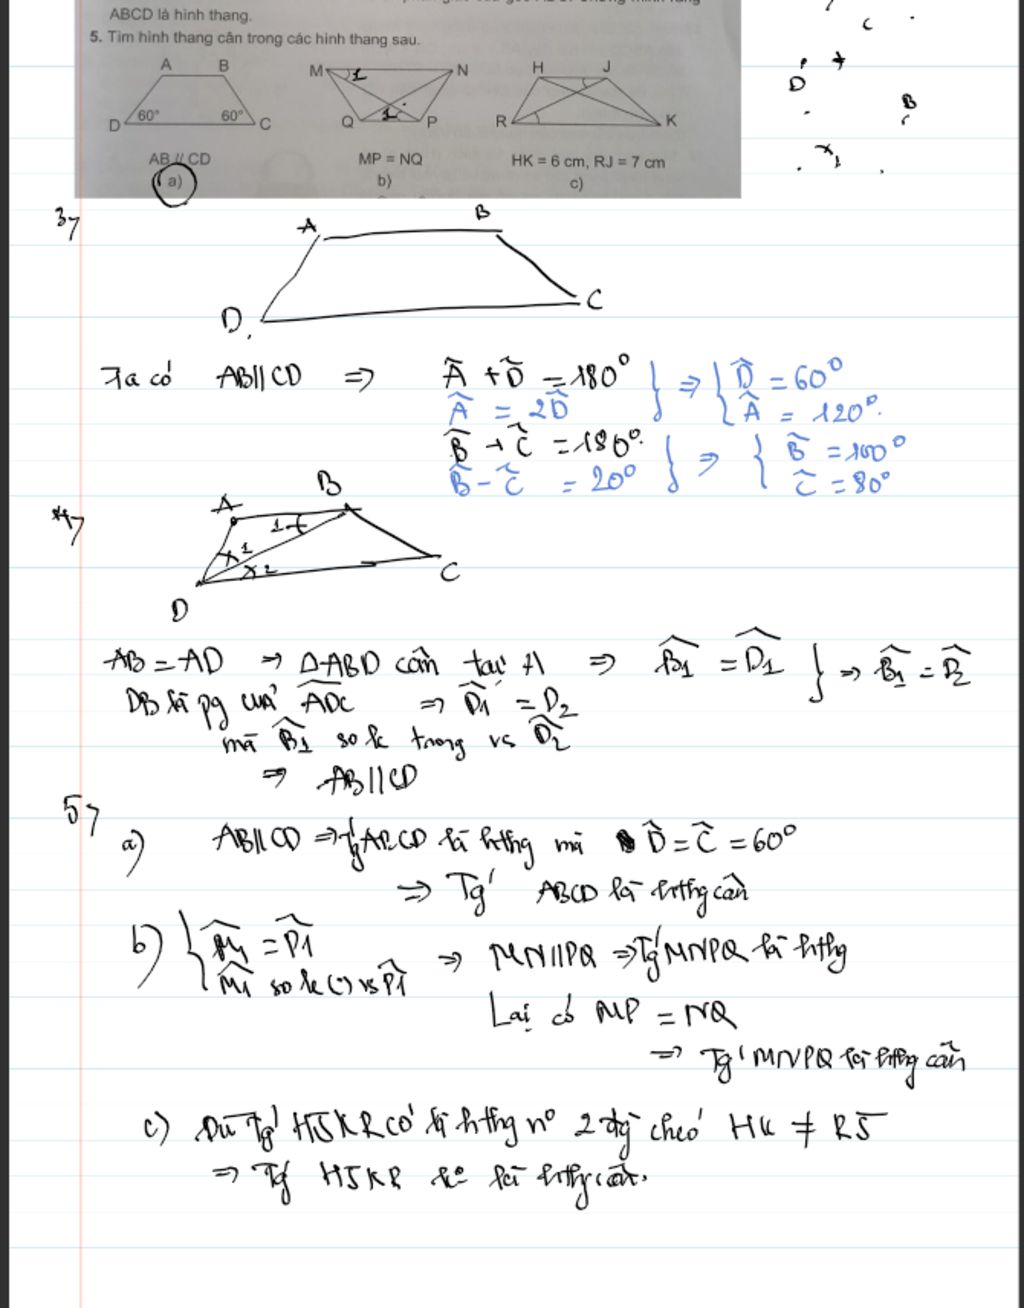 ABCD là hình thang.
5. Tìm hình thang cân trong các hình thang sau.
A B
60° 60°
D C
AB // CD
a)
M 1 N
Q 1 P
MP = NQ
b)
H J
R K
HK = 6 cm, RJ = 7 cm
c)
C
D
B
x1
3)
A B
D C
Ta có AB//CD => Â + D̂ = 180°
Â = 2D̂
} => { D̂ = 60°
Â = 120°.
B̂ + Ĉ = 180°.
B̂ - Ĉ = 20°
} => { B̂ = 100°
Ĉ = 80°
4)
A B
1
1
x2
D C
AB = AD => ΔABD cân tại A => B̂1 = D̂1 } => B̂1 = D̂2
DB là pg của ADC => D̂1 = D2
mà B̂1 so le trong vs D̂2
=> AB//CD
5)
a) AB//CD => Tg ABCD là hthg mà D̂ = Ĉ = 60°
=> Tg' ABCD là hthg cân
b) { M̂1 = P̂1
M̂1 so le () vs P̂1
=> MN//PQ => Tg' MNPQ là hthg
Lại có MP = NQ
=> Tg' MNPQ là hthg cân
c) Dù Tg' HJKR có là hthg n° 2 đg chéo HK ≠ RJ
=> Tg' HJKR k° là hthg cân.